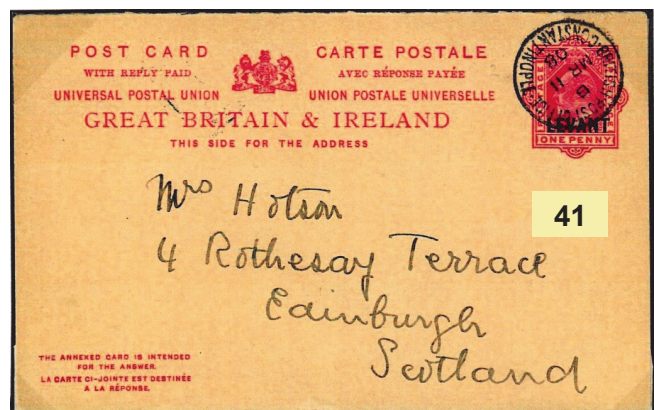 POST CARD CARTE POSTALE
WITH REPLY PAID AVEC RÉPONSE PAYÉE
UNIVERSAL POSTAL UNION UNION POSTALE UNIVERSELLE
GREAT BRITAIN & IRELAND
THIS SIDE FOR THE ADDRESS
BRITISH POST OFFICE CONSTANTINOPLE
MR 11
08
LEVANT
ONE PENNY
Mrs Hotson
41
4 Rothesay Terrace
Edinburgh
Scotland
THE ANNEXED CARD IS INTENDED
FOR THE ANSWER.
LA CARTE CI-JOINTE EST DESTINÉE
A LA RÉPONSE.